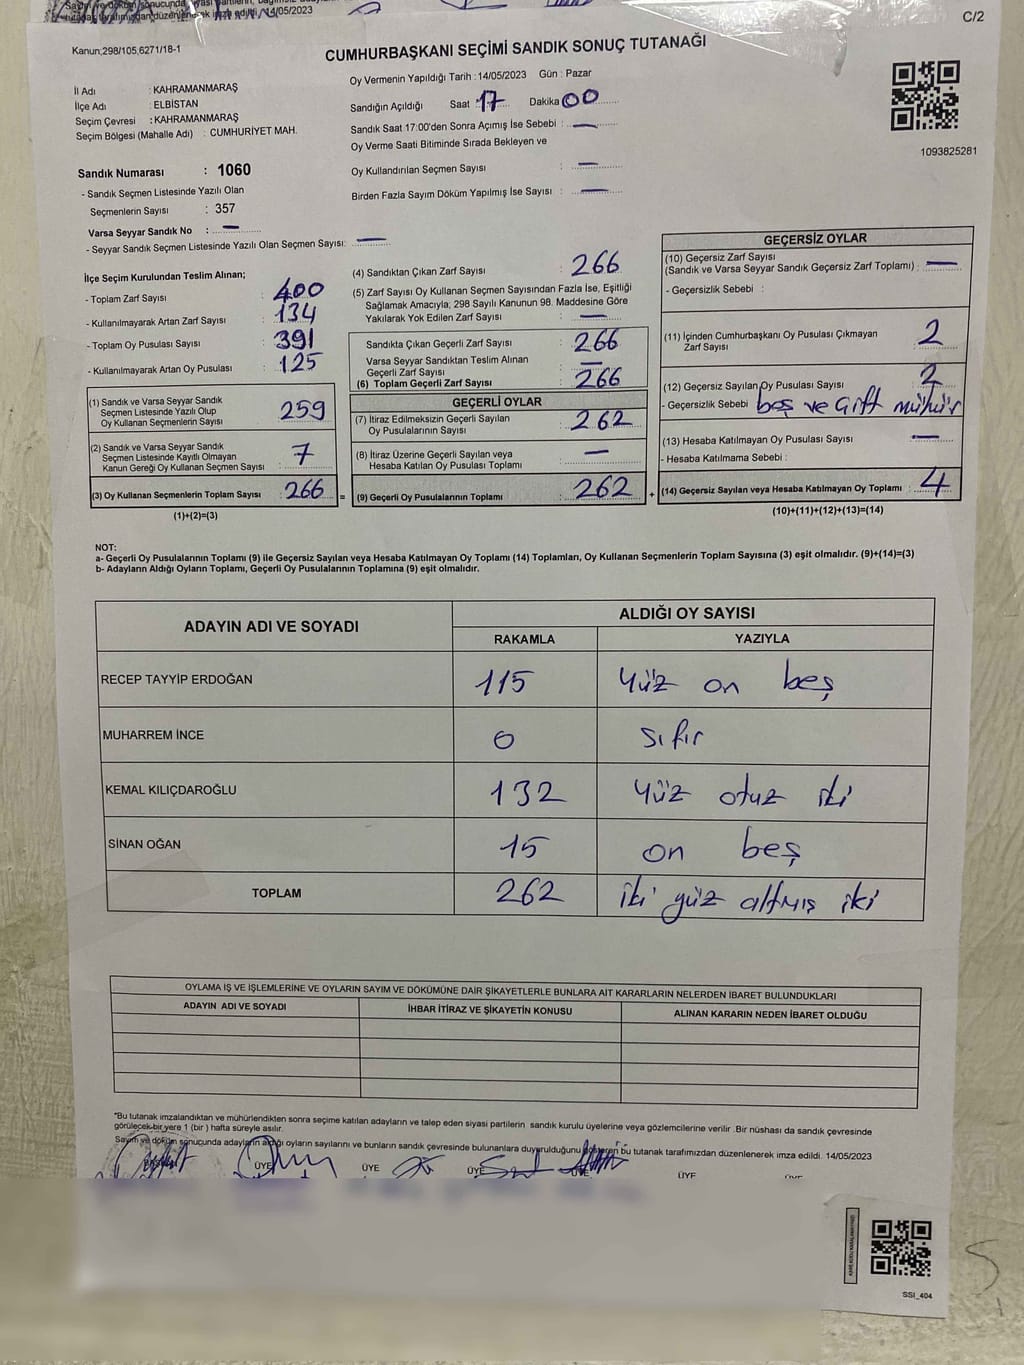 tutanak tarafımızdan düzenlenerek imza edildi. 14/05/2023
C/2
Kanun;298/105,6271/18-1
CUMHURBAŞKANI SEÇİMİ SANDIK SONUÇ TUTANAĞI
İl Adı : KAHRAMANMARAŞ
İlçe Adı : ELBİSTAN
Seçim Çevresi : KAHRAMANMARAŞ
Seçim Bölgesi (Mahalle Adı) : CUMHURİYET MAH.
Oy Vermenin Yapıldığı Tarih : 14/05/2023 Gün : Pazar
Sandığın Açıldığı Saat : 17 Dakika 00
Sandık Saat 17:00'den Sonra Açımış İse Sebebi : —
Oy Verme Saati Bitiminde Sırada Bekleyen ve
Oy Kullandırılan Seçmen Sayısı : —
Birden Fazla Sayım Döküm Yapılmış İse Sayısı : —
1093825281
Sandık Numarası : 1060
- Sandık Seçmen Listesinde Yazılı Olan
Seçmenlerin Sayısı : 357
Varsa Seyyar Sandık No : —
- Seyyar Sandık Seçmen Listesinde Yazılı Olan Seçmen Sayısı: —
İlçe Seçim Kurulundan Teslim Alınan;
- Toplam Zarf Sayısı : 400
- Kullanılmayarak Artan Zarf Sayısı : 134
- Toplam Oy Pusulası Sayısı : 391
- Kullanılmayarak Artan Oy Pusulası : 125
(1) Sandık ve Varsa Seyyar Sandık
Seçmen Listesinde Yazılı Olup
Oy Kullanan Seçmenlerin Sayısı : 259
(2) Sandık ve Varsa Seyyar Sandık
Seçmen Listesinde Kayıtlı Olmayan
Kanun Gereği Oy Kullanan Seçmen Sayısı : 7
(3) Oy Kullanan Seçmenlerin Toplam Sayısı : 266 =
(1)+(2)=(3)
(4) Sandıktan Çıkan Zarf Sayısı : 266
(5) Zarf Sayısı Oy Kullanan Seçmen Sayısından Fazla İse, Eşitliği
Sağlamak Amacıyla; 298 Sayılı Kanunun 98. Maddesine Göre
Yakılarak Yok Edilen Zarf Sayısı : —
Sandıkta Çıkan Geçerli Zarf Sayısı : 266
Varsa Seyyar Sandıktan Teslim Alınan
Geçerli Zarf Sayısı : —
(6) Toplam Geçerli Zarf Sayısı : 266
GEÇERLİ OYLAR
(7) İtiraz Edilmeksizin Geçerli Sayılan
Oy Pusulalarının Sayısı : 262
(8) İtiraz Üzerine Geçerli Sayılan veya
Hesaba Katılan Oy Pusulası Toplamı : —
(9) Geçerli Oy Pusulalarının Toplamı : 262 +
GEÇERSİZ OYLAR
(10) Geçersiz Zarf Sayısı
(Sandık ve Varsa Seyyar Sandık Geçersiz Zarf Toplamı) : —
- Geçersizlik Sebebi :
(11) İçinden Cumhurbaşkanı Oy Pusulası Çıkmayan
Zarf Sayısı : 2
(12) Geçersiz Sayılan Oy Pusulası Sayısı : 2
- Geçersizlik Sebebi : boş ve çift mühür
(13) Hesaba Katılmayan Oy Pusulası Sayısı : —
- Hesaba Katılmama Sebebi :
(14) Geçersiz Sayılan veya Hesaba Katılmayan Oy Toplamı : 4
(10)+(11)+(12)+(13)=(14)
NOT:
a- Geçerli Oy Pusulalarının Toplamı (9) ile Geçersiz Sayılan veya Hesaba Katılmayan Oy Toplamı (14) Toplamları, Oy Kullanan Seçmenlerin Toplam Sayısına (3) eşit olmalıdır. (9)+(14)=(3)
b- Adayların Aldığı Oyların Toplamı, Geçerli Oy Pusulalarının Toplamına (9) eşit olmalıdır.
ADAYIN ADI VE SOYADI
ALDIĞI OY SAYISI
RAKAMLA YAZIYLA
RECEP TAYYİP ERDOĞAN 115 Yüz on beş
MUHARREM İNCE 0 sıfır
KEMAL KILIÇDAROĞLU 132 Yüz otuz iki
SİNAN OĞAN 15 on beş
TOPLAM 262 iki yüz altmış iki
OYLAMA İŞ VE İŞLEMLERİNE VE OYLARIN SAYIM VE DÖKÜMÜNE DAİR ŞİKAYETLERLE BUNLARA AİT KARARLARIN NELERDEN İBARET BULUNDUKLARI
ADAYIN ADI VE SOYADI İHBAR İTİRAZ VE ŞİKAYETİN KONUSU ALINAN KARARIN NEDEN İBARET OLDUĞU
"Bu tutanak imzalandıktan ve mühürlendikten sonra seçime katılan adayların ve talep eden siyasi partilerin sandık kurulu üyelerine veya gözlemcilerine verilir .Bir nüshası da sandık çevresinde
görülecek bir yere 1 (bir ) hafta süreyle asılır.
Sayım ve döküm sonucunda adayların aldığı oyların sayılarını ve bunların sandık çevresinde bulunanlara duyurulduğunu gösteren bu tutanak tarafımızdan düzenlenerek imza edildi. 14/05/2023
ÜYE ÜYE ÜYE ÜYE ÜYE
SSI_404